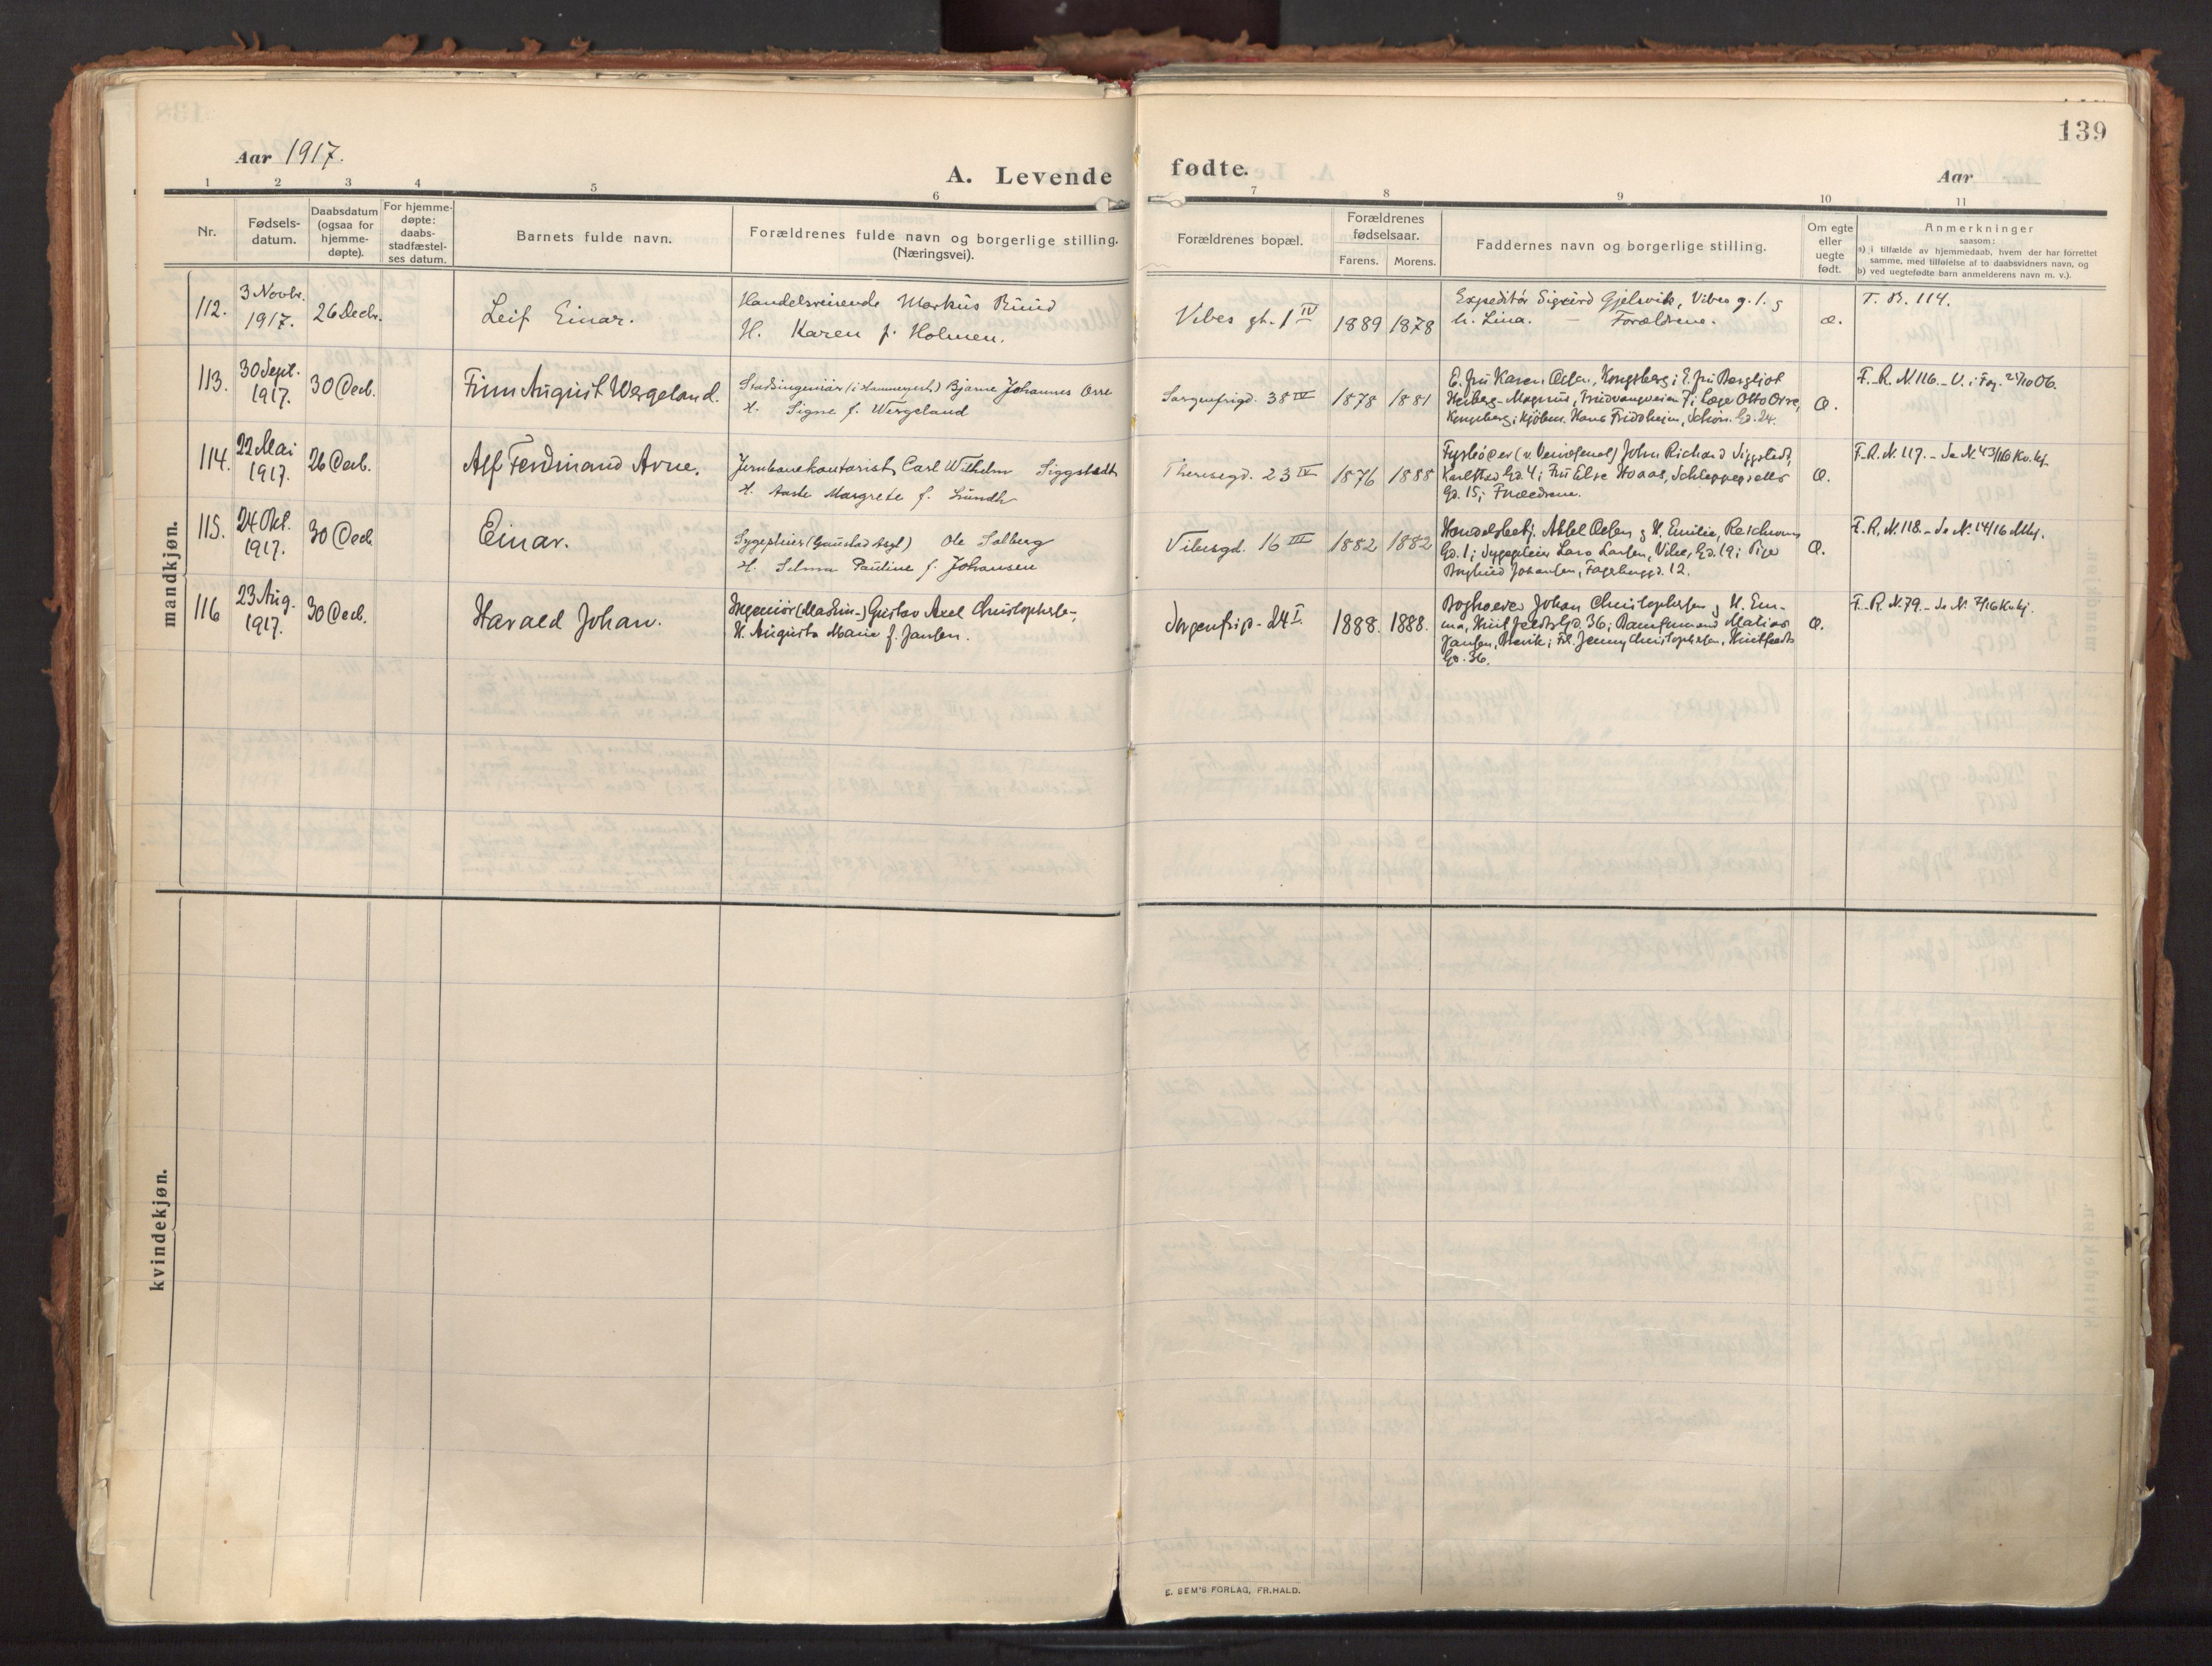 139
Aar 1917.
A. Levende fødte.
Aar
1 2 3 4 5 6 7 8 9 10 11
Nr.
Fødsels-
datum.
Daabsdatum
(ogsaa for
hjemme-
døpte).
For hjemme-
døpte:
daabs-
stadfæstel-
ses datum.
Barnets fulde navn.
Forældrenes fulde navn og borgerlige stilling.
(Næringsvei).
Forældrenes bopæl.
Forældrenes
fødselsaar.
Farens. Morens.
Faddernes navn og borgerlige stilling.
Om egte
eller
uegte
født.
Anmerkninger
saasom:
a) i tilfælde av hjemmedaab, hvem der har forrettet
samme, med tilføielse af to daabsvidners navn, og
b) ved uegtefødte barn anmelderens navn m. v.).
mandkjøn.
112.
3 Novbr.
1917.
26 Decbr.
Leif Einar.
Handelsreisende Markus Ruud
H. Karen f. Holmen.
Vibes gt. 1 IV
1889 1878
Expeditør Sigurd Gjelsvik, Vibes g. 1. og
h. Lina. — Forældrene.
æ.
F. R. 114.
113.
30 Sept.
1917.
30 Decb.
Finn August Wergeland.
Stadsingeniør (i Hammerfest) Bjarne Johannes Orre
H. Signe f. Wergeland
Sorgenfrigd. 38 IV
1878 1881
E. fru Karen Olsen, Kongsberg; E. fru Bergljot
Heiberg-Magnus, Trudvangveien 7; Læge Otto Orre,
Kongsberg; Kjøbm. Hans Fridheim, Schøn. Gd. 24.
Æ.
F. R. N. 116. - V. i Fag. 25/10 06.
114.
22 Mai
1917.
26 Decb.
Alf Ferdinand Arne.
Jernbanekontorist, Carl Wilhelm Siggstedt
H. Aaste Margrete f. Lundh
Theresegd. 23 IV
1876 1888
Fyrbøder John Richard Siggstedt,
Karlstad Gd. 4; Fru Else Haaas, Schleppegrells
Gd. 15; Forældrene.
Æ.
F. R. N. 117. - Se N. 43/1916 Kv. kj.
115.
24 Okt.
1917.
30 Decb
Einar.
Sygepleier (Gaustad Asyl) Ole Solberg
H. Selma Pauline f. Johansen
Vibesgd. 16 III
1882 1882
Handelsbetj. Aksel Olsen og H. Emilie, Reichweins
Gd. 1; Sygepleier Lars Larsen, Vibes Gd. 19; Pige
Borghild Johansen, Fagerborggd. 12.
Æ.
F. R. N. 118. - Se N. 14/16 Mkj.
116
23 Aug.
1917.
30 Decb.
Harald Johan.
Ingeniør (Maskin-) Gustav Axel Christophersen,
H. Augusta Marie f. Jansen.
Sorgenfrigd. 24 I.
1888. 1888.
Bogholder Johan Christophersen og H. Em-
ma, Huitfeldts Gd. 36; Mathias
Jansen, Brevik; Frk. Jenny Christophersen, Huitfeldts
Gd. 36.
Æ.
F. R. N. 79. - Se N. 7/16 Kv. kj.
kvindekjøn.
E. SEM'S FORLAG, FR.HALD.